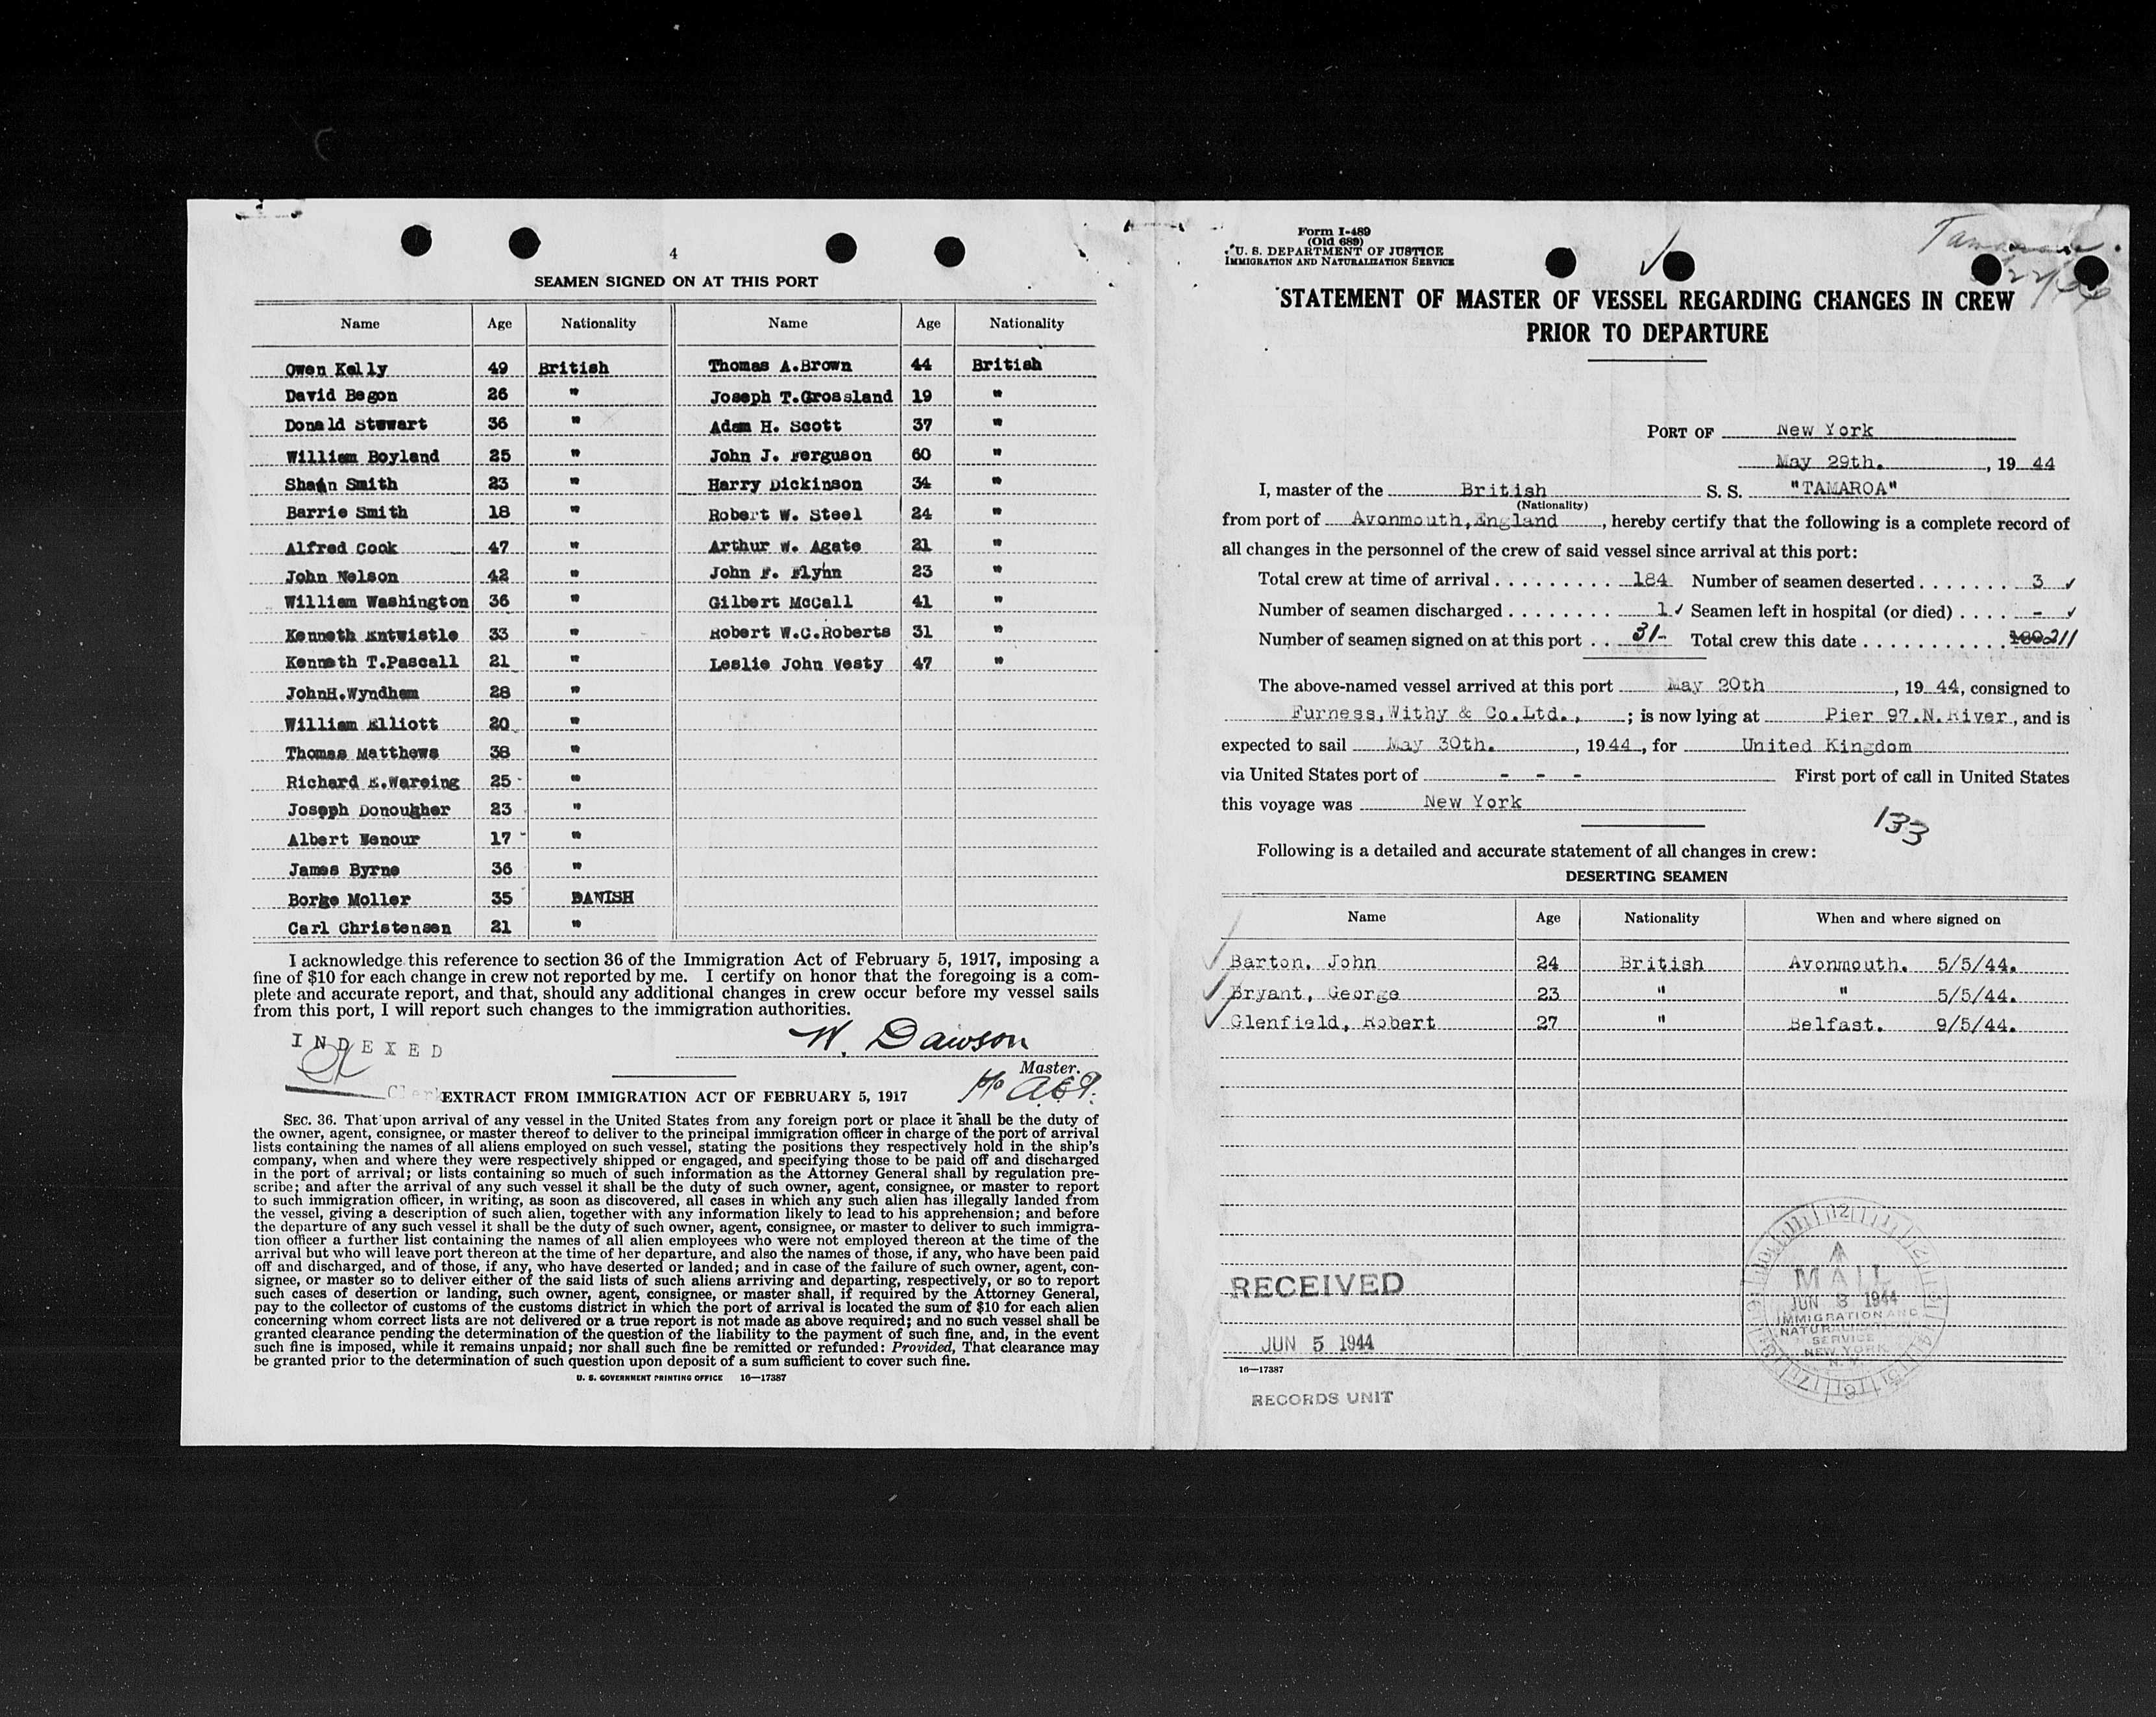 4
SEAMEN SIGNED ON AT THIS PORT
Name Age Nationality Name Age Nationality
Owen Kelly 49 British Thomas A.Brown 44 British
David Begon 26 " Joseph T.Grossland 19 "
Donald Stewart 36 " Adam H. Scott 37 "
William Boyland 25 " John J. Ferguson 60 "
Shaun Smith 23 " Harry Dickinson 34 "
Barrie Smith 18 " Robert W. Steel 24 "
Alfred Cook 47 " Arthur W. Agate 21 "
John Nelson 42 " John F. Flynn 23 "
William Washington 36 " Gilbert McCall 41 "
Kenneth Entwistle 33 " Robert W.C.Roberts 31 "
Kenneth T.Pascall 21 " Leslie John Vesty 47 "
JohnH.Wyndham 28 "
William Elliott 20 "
Thomas Matthews 38 "
Richard E.Wareing 25 "
Joseph Donougher 23 "
Albert Wenour 17 "
James Byrne 36 "
Borge Moller 35 DANISH
Carl Christensen 21 "
I acknowledge this reference to section 36 of the Immigration Act of February 5, 1917, imposing a
fine of $10 for each change in crew not reported by me. I certify on honor that the foregoing is a com-
plete and accurate report, and that, should any additional changes in crew occur before my vessel sails
from this port, I will report such changes to the immigration authorities.
INDEXED
W. Dawson
Master.
Clerk
EXTRACT FROM IMMIGRATION ACT OF FEBRUARY 5, 1917
SEC. 36. That upon arrival of any vessel in the United States from any foreign port or place it shall be the duty of
the owner, agent, consignee, or master thereof to deliver to the principal immigration officer in charge of the port of arrival
lists containing the names of all aliens employed on such vessel, stating the positions they respectively hold in the ship's
company, when and where they were respectively shipped or engaged, and specifying those to be paid off and discharged
in the port of arrival; or lists containing so much of such information as the Attorney General shall by regulation pre-
scribe; and after the arrival of any such vessel it shall be the duty of such owner, agent, consignee, or master to report
to such immigration officer, in writing, as soon as discovered, all cases in which any such alien has illegally landed from
the vessel, giving a description of such alien, together with any information likely to lead to his apprehension; and before
the departure of any such vessel it shall be the duty of such owner, agent, consignee, or master to deliver to such immigra-
tion officer a further list containing the names of all alien employees who were not employed thereon at the time of the
arrival but who will leave port thereon at the time of her departure, and also the names of those, if any, who have been paid
off and discharged, and of those, if any, who have deserted or landed; and in case of the failure of such owner, agent, con-
signee, or master so to deliver either of the said lists of such aliens arriving and departing, respectively, or so to report
such cases of desertion or landing, such owner, agent, consignee, or master shall, if required by the Attorney General,
pay to the collector of customs of the customs district in which the port of arrival is located the sum of $10 for each alien
concerning whom correct lists are not delivered or a true report is not made as above required; and no such vessel shall be
granted clearance pending the determination of the question of the liability to the payment of such fine, and, in the event
such fine is imposed, while it remains unpaid; nor shall such fine be remitted or refunded: Provided, That clearance may
be granted prior to the determination of such question upon deposit of a sum sufficient to cover such fine.
U. S. GOVERNMENT PRINTING OFFICE 16—17387
Form I-489
(Old 689)
U. S. DEPARTMENT OF JUSTICE
IMMIGRATION AND NATURALIZATION SERVICE
STATEMENT OF MASTER OF VESSEL REGARDING CHANGES IN CREW
PRIOR TO DEPARTURE
PORT OF New York
May 29th. , 19 44
I, master of the British S. S. "TAMAROA"
(Nationality)
from port of Avonmouth,England , hereby certify that the following is a complete record of
all changes in the personnel of the crew of said vessel since arrival at this port:
Total crew at time of arrival . . . . . . . . . 184 Number of seamen deserted . . . . . . . 3 ✓
Number of seamen discharged . . . . . . . 1 ✓ Seamen left in hospital (or died) . . . . - ✓
Number of seamen signed on at this port . . 31- Total crew this date . . . . . . . . . . . 211
The above-named vessel arrived at this port May 20th , 19 44, consigned to
Furness,Withy & Co.Ltd., ; is now lying at Pier 97.N.River , and is
expected to sail May 30th. , 1944 , for United Kingdom
via United States port of - - - First port of call in United States
this voyage was New York
133
Following is a detailed and accurate statement of all changes in crew:
DESERTING SEAMEN
Name Age Nationality When and where signed on
Barton, John 24 British Avonmouth. 5/5/44.
Bryant, George 23 " " 5/5/44.
Glenfield, Robert 27 " Belfast. 9/5/44.
RECEIVED
JUN 5 1944
MAIL
JUN 3 1944
IMMIGRATION AND
NATURALIZATION
SERVICE
NEW YORK
N. Y.
16—17387
RECORDS UNIT